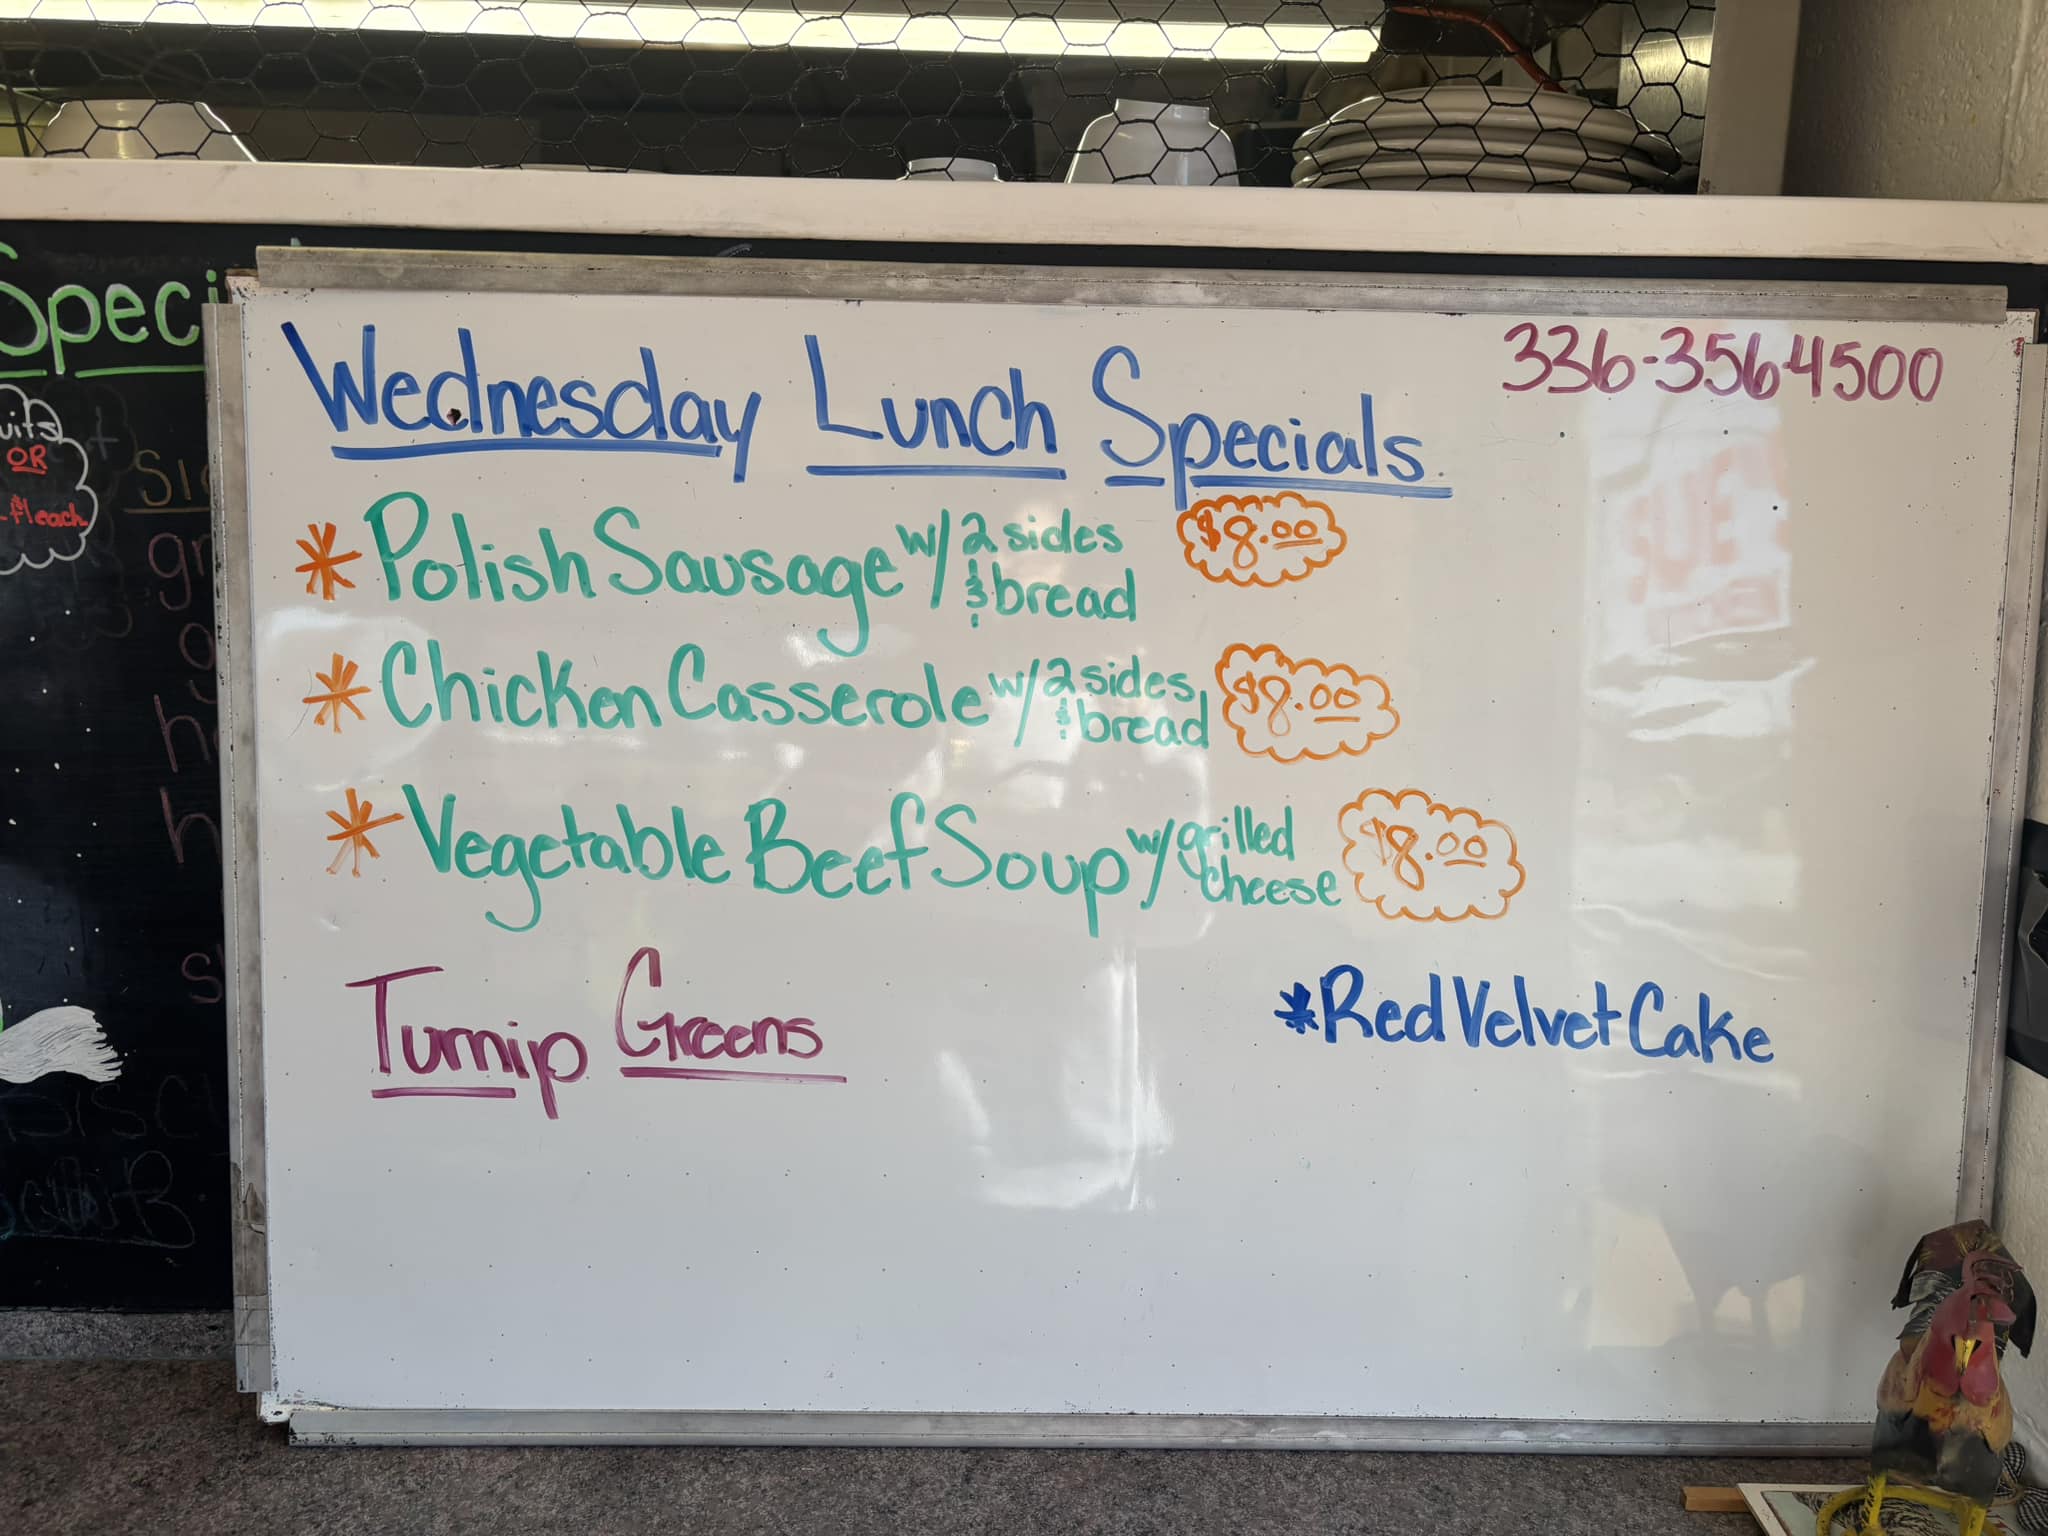 Speci
336-356-4500
Wednesday Lunch Specials
* Polish Sausage w/ 2 sides
& bread
$8.00
* Chicken Casserole w/ 2 sides
& bread
$8.00
* Vegetable Beef Soup w/ grilled
cheese
$8.00
Turnip Greens
* Red Velvet Cake
OR
each